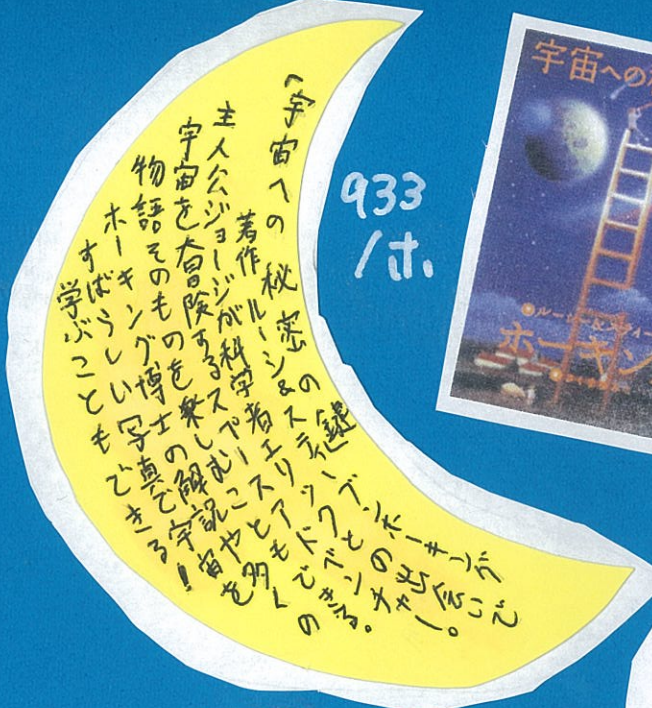 「宇宙への秘密の鍵
著作ルーシ&スティーブン・ホーキング
主人公ジョージが科学者エリックとの出会いで
宇宙を大冒険するスペースアドベンチャー。
物語そのものを楽しむこともできる。
ホーキング博士の解説や多くの
すばらしい写真で宇宙を
学ぶこともできる!
933
/ホ
宇宙への
ルーシー&スティー
ホーキン